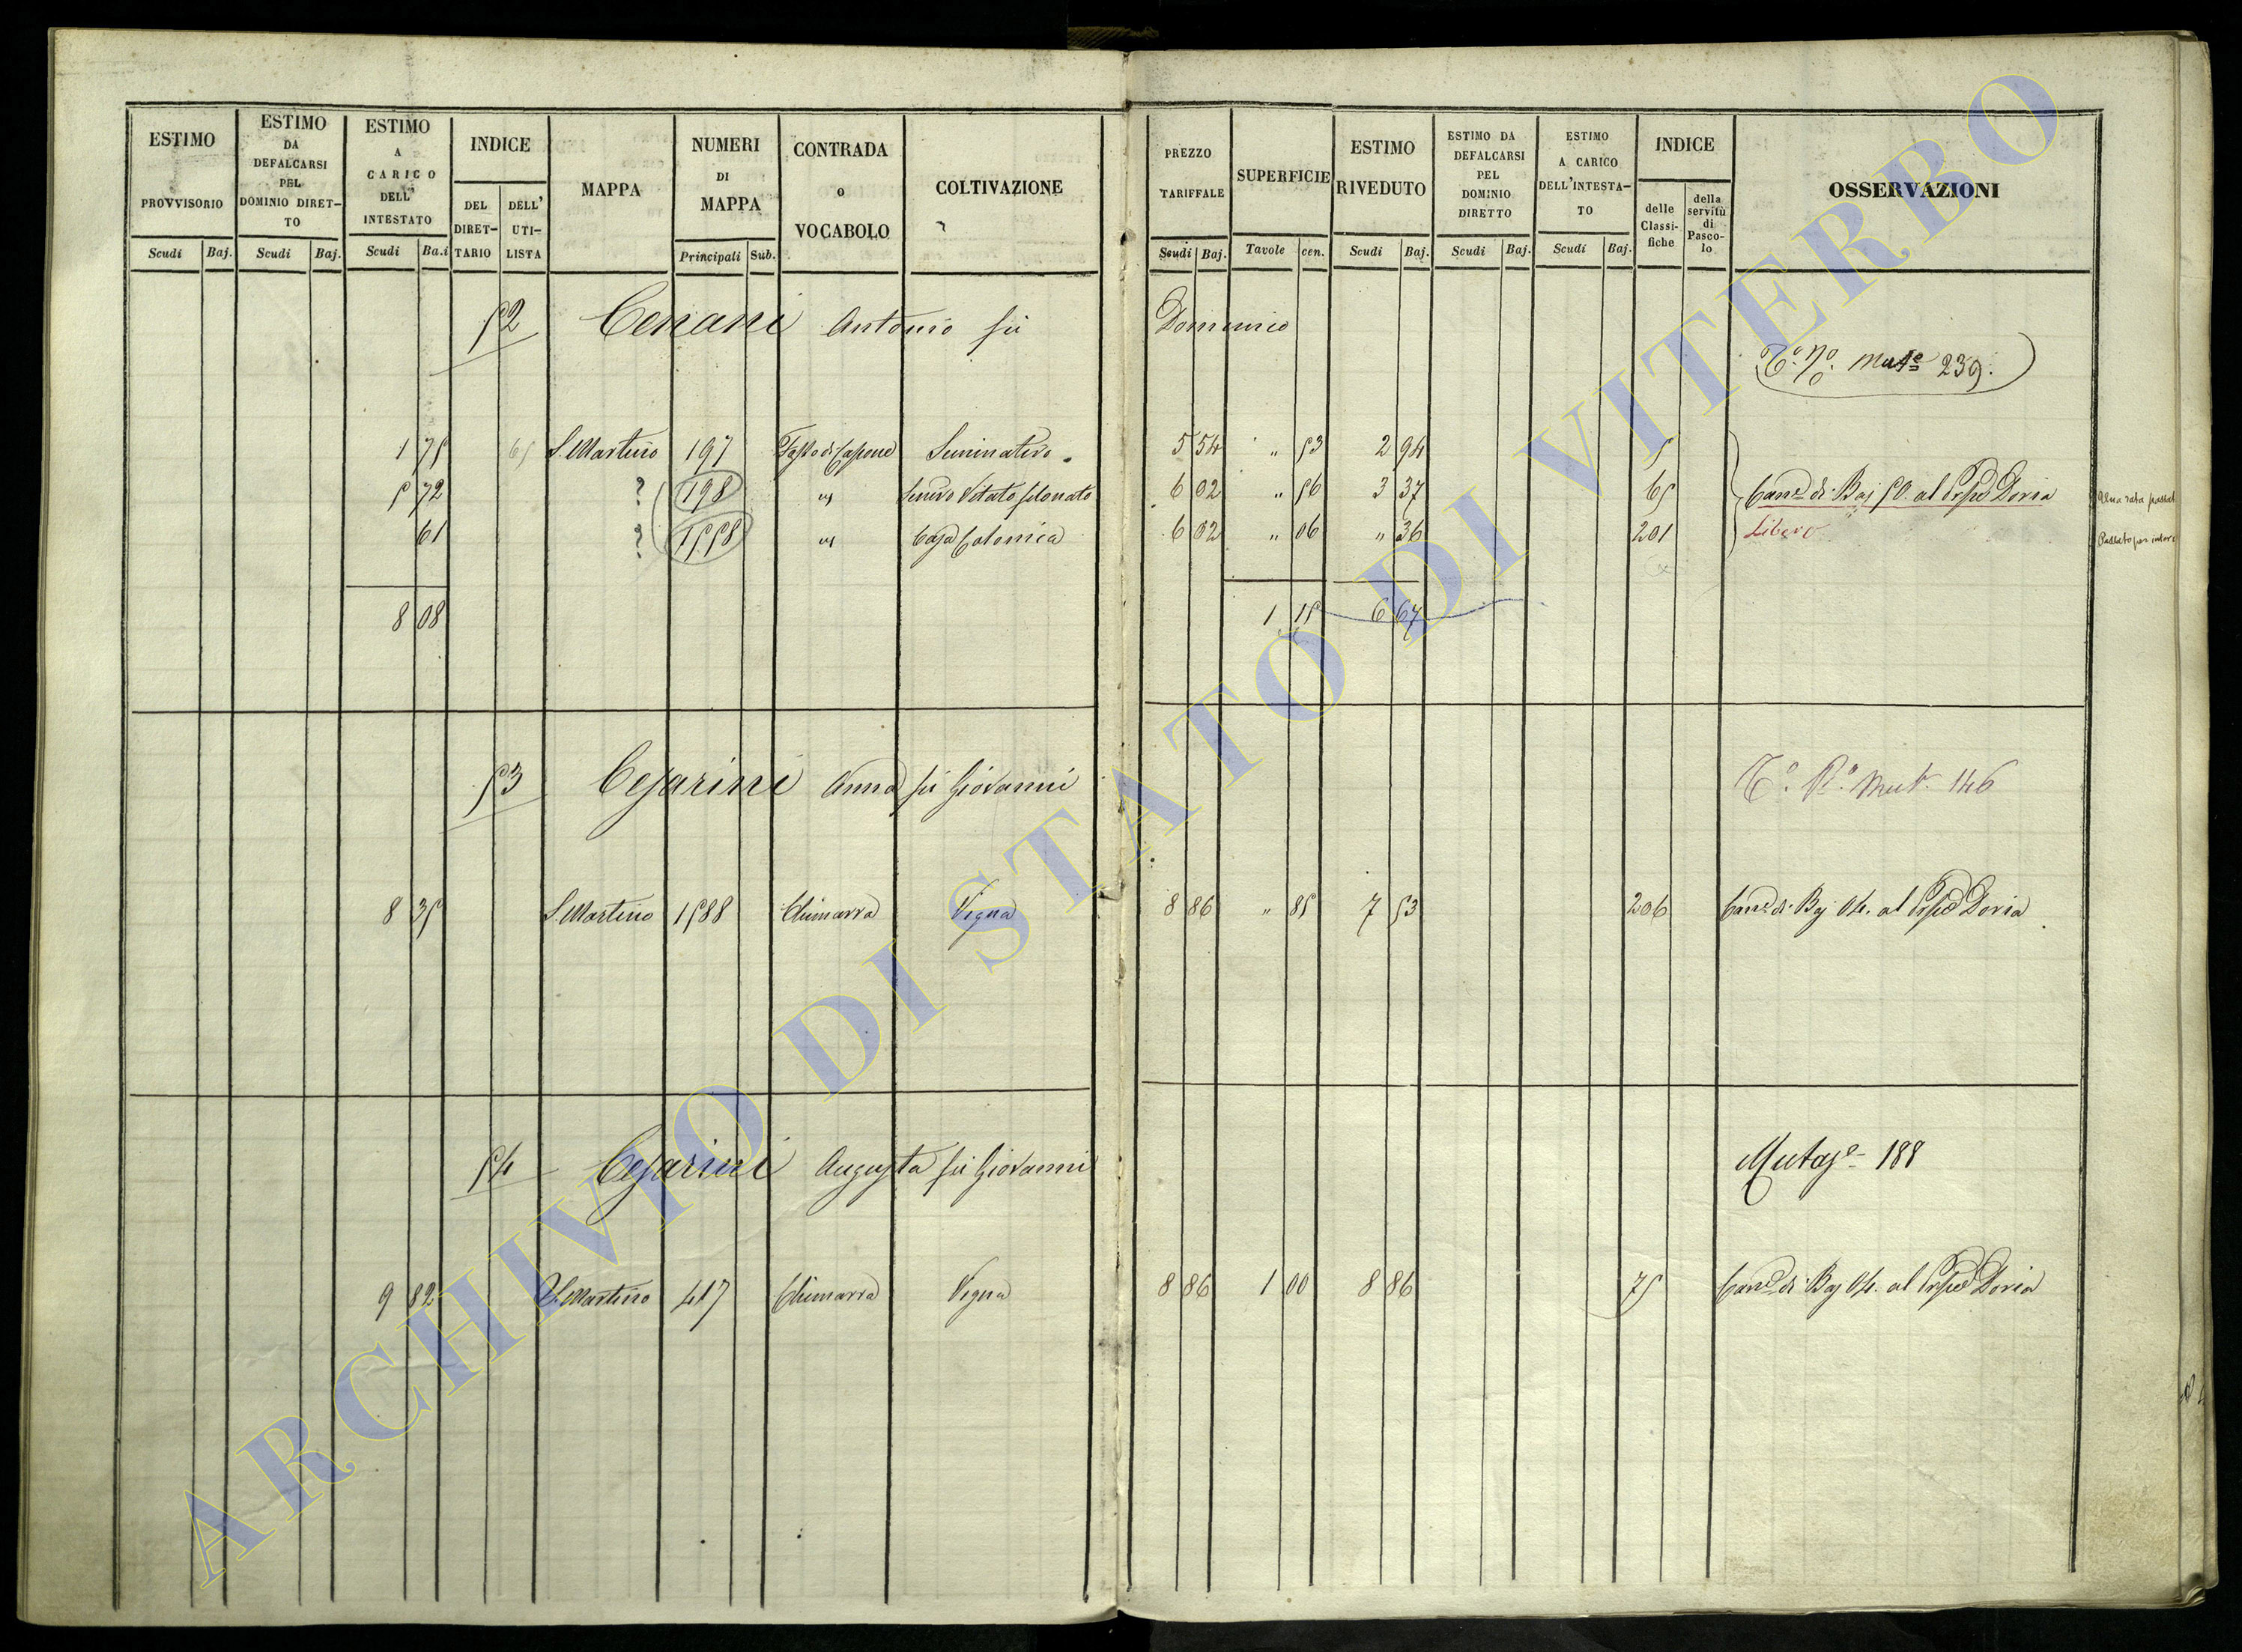 ESTIMO PROVVISORIO Scudi Baj.
ESTIMO DA DEFALCARSI PEL DOMINIO DIRETTO Scudi Baj.
ESTIMO A CARICO DELL' INTESTATO Scudi Ba.i
INDICE DEL DIRETTARIO DELL' UTILISTA
MAPPA
NUMERI DI MAPPA Principali Sub.
CONTRADA o VOCABOLO
COLTIVAZIONE
PREZZO TARIFFALE Scudi Baj.
SUPERFICIE Tavole cen.
ESTIMO RIVEDUTO Scudi Baj.
ESTIMO DA DEFALCARSI PEL DOMINIO DIRETTO Scudi Baj.
ESTIMO A CARICO DELL'INTESTATO Scudi Baj.
INDICE delle Classifiche della servitù di Pascolo
OSSERVAZIONI
52 Cenani Antonio fu Domenico
Mut.e 239.
1 75 65 S. Martino 197 Seminativo 5 54 " 53 2 94 5
5 72 ? 198 Vitato 6 02 " 56 3 37 65 Can.e di Baj 50. al Doria
61 ? 1558 Casa Colonica 6 02 " 06 " 36 201 Libero
8 08 1 15 6 67
53 Cesarini Anna fu Giovanni
Mut. 146
8 35 S. Martino 1588 Chimarra Vigna 8 86 " 85 7 53 206 Can.e di Baj 04. al Doria
54 Cesarini Augusta fu Giovanni
Mutaz.e 188
9 82 S. Martino 417 Chimarra Vigna 8 86 1 00 8 86 75 Can.e di Baj 04. al Doria
ARCHIVIO DI STATO DI VITERBO